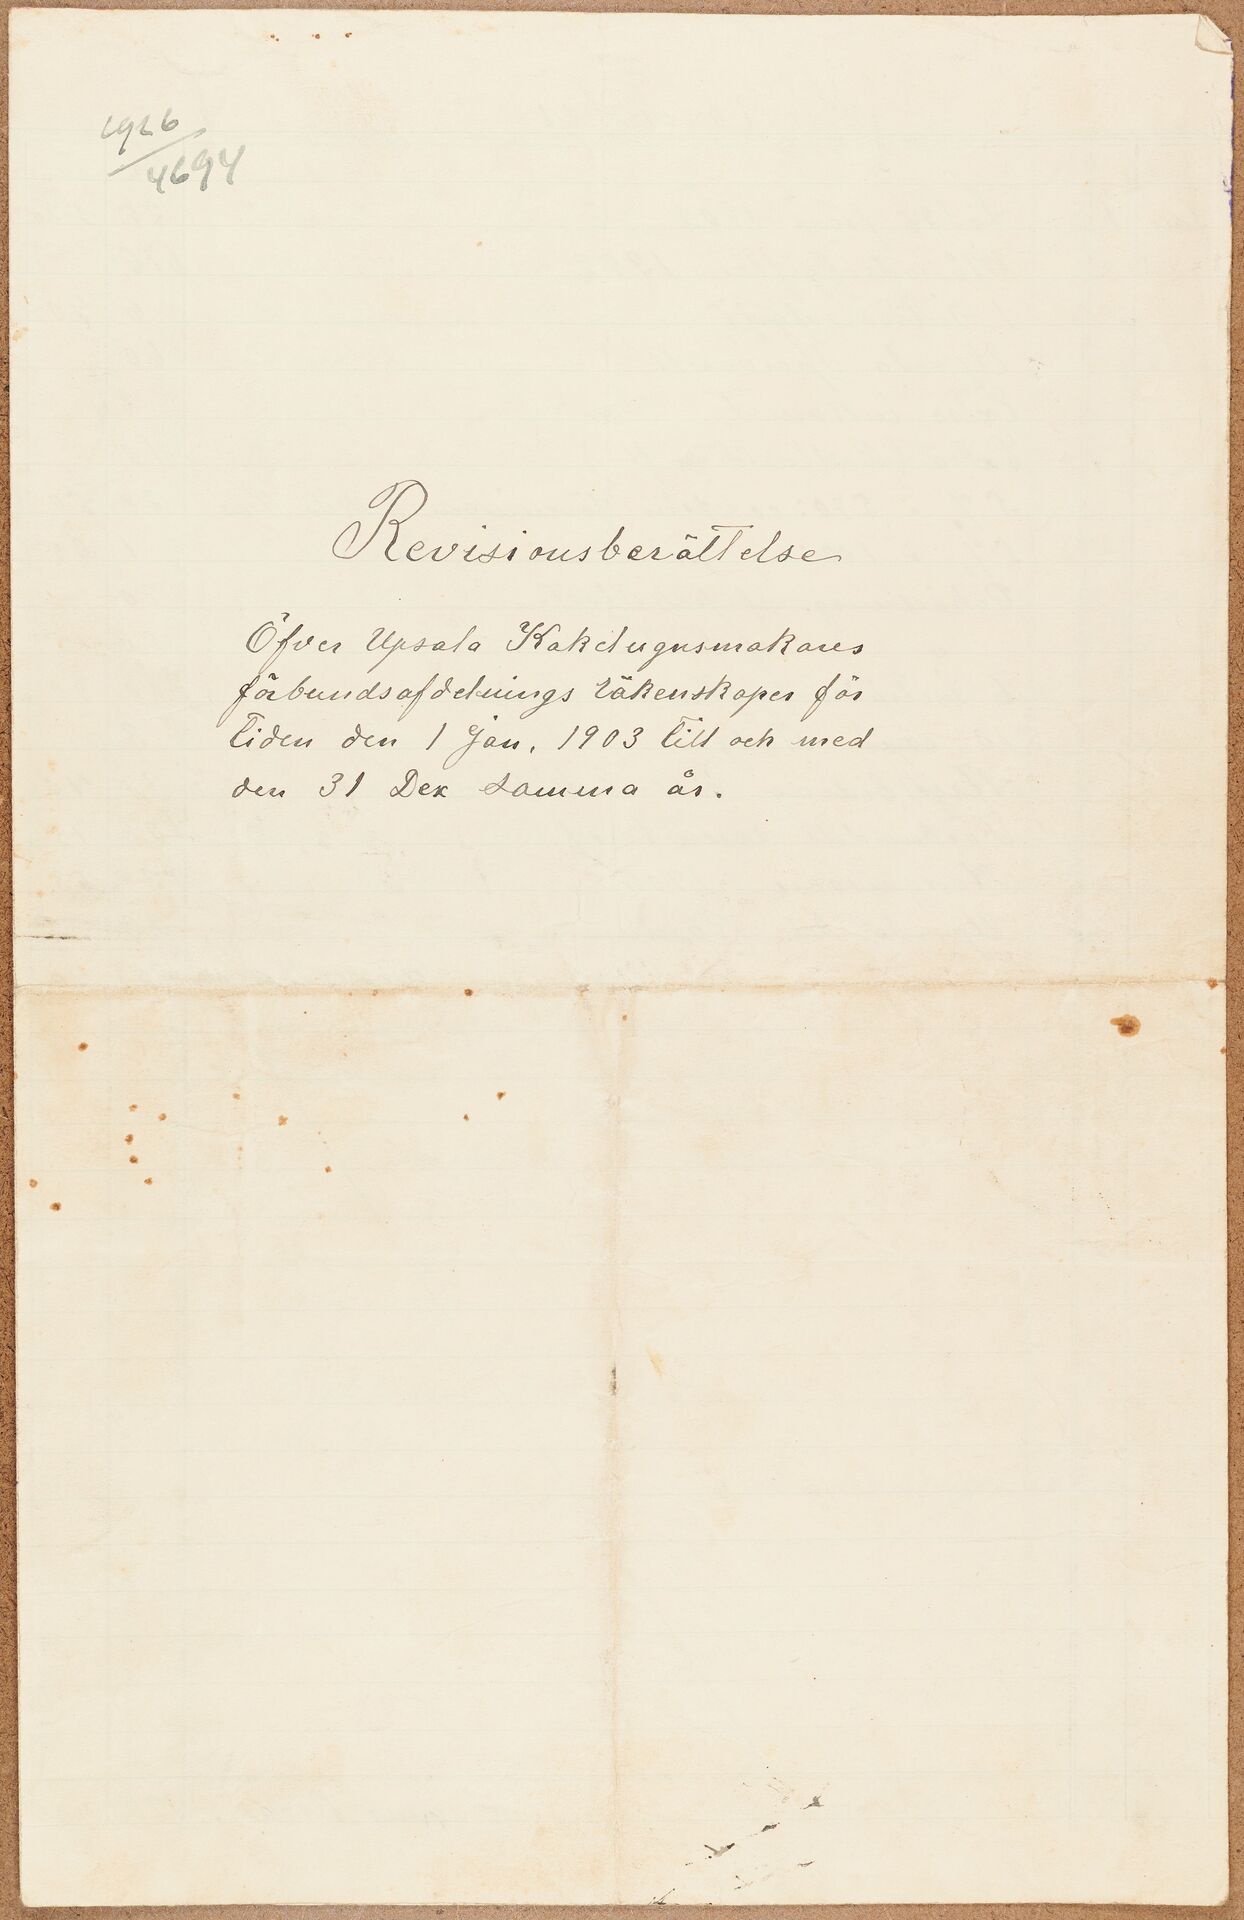 1926
4694
Revisionsberättelse
Öfver Upsala Kakelugnsmakares
förbundsafdelnings räkenskaper för
tiden den 1 Jan. 1903 till och med
den 31 Dex samma år.